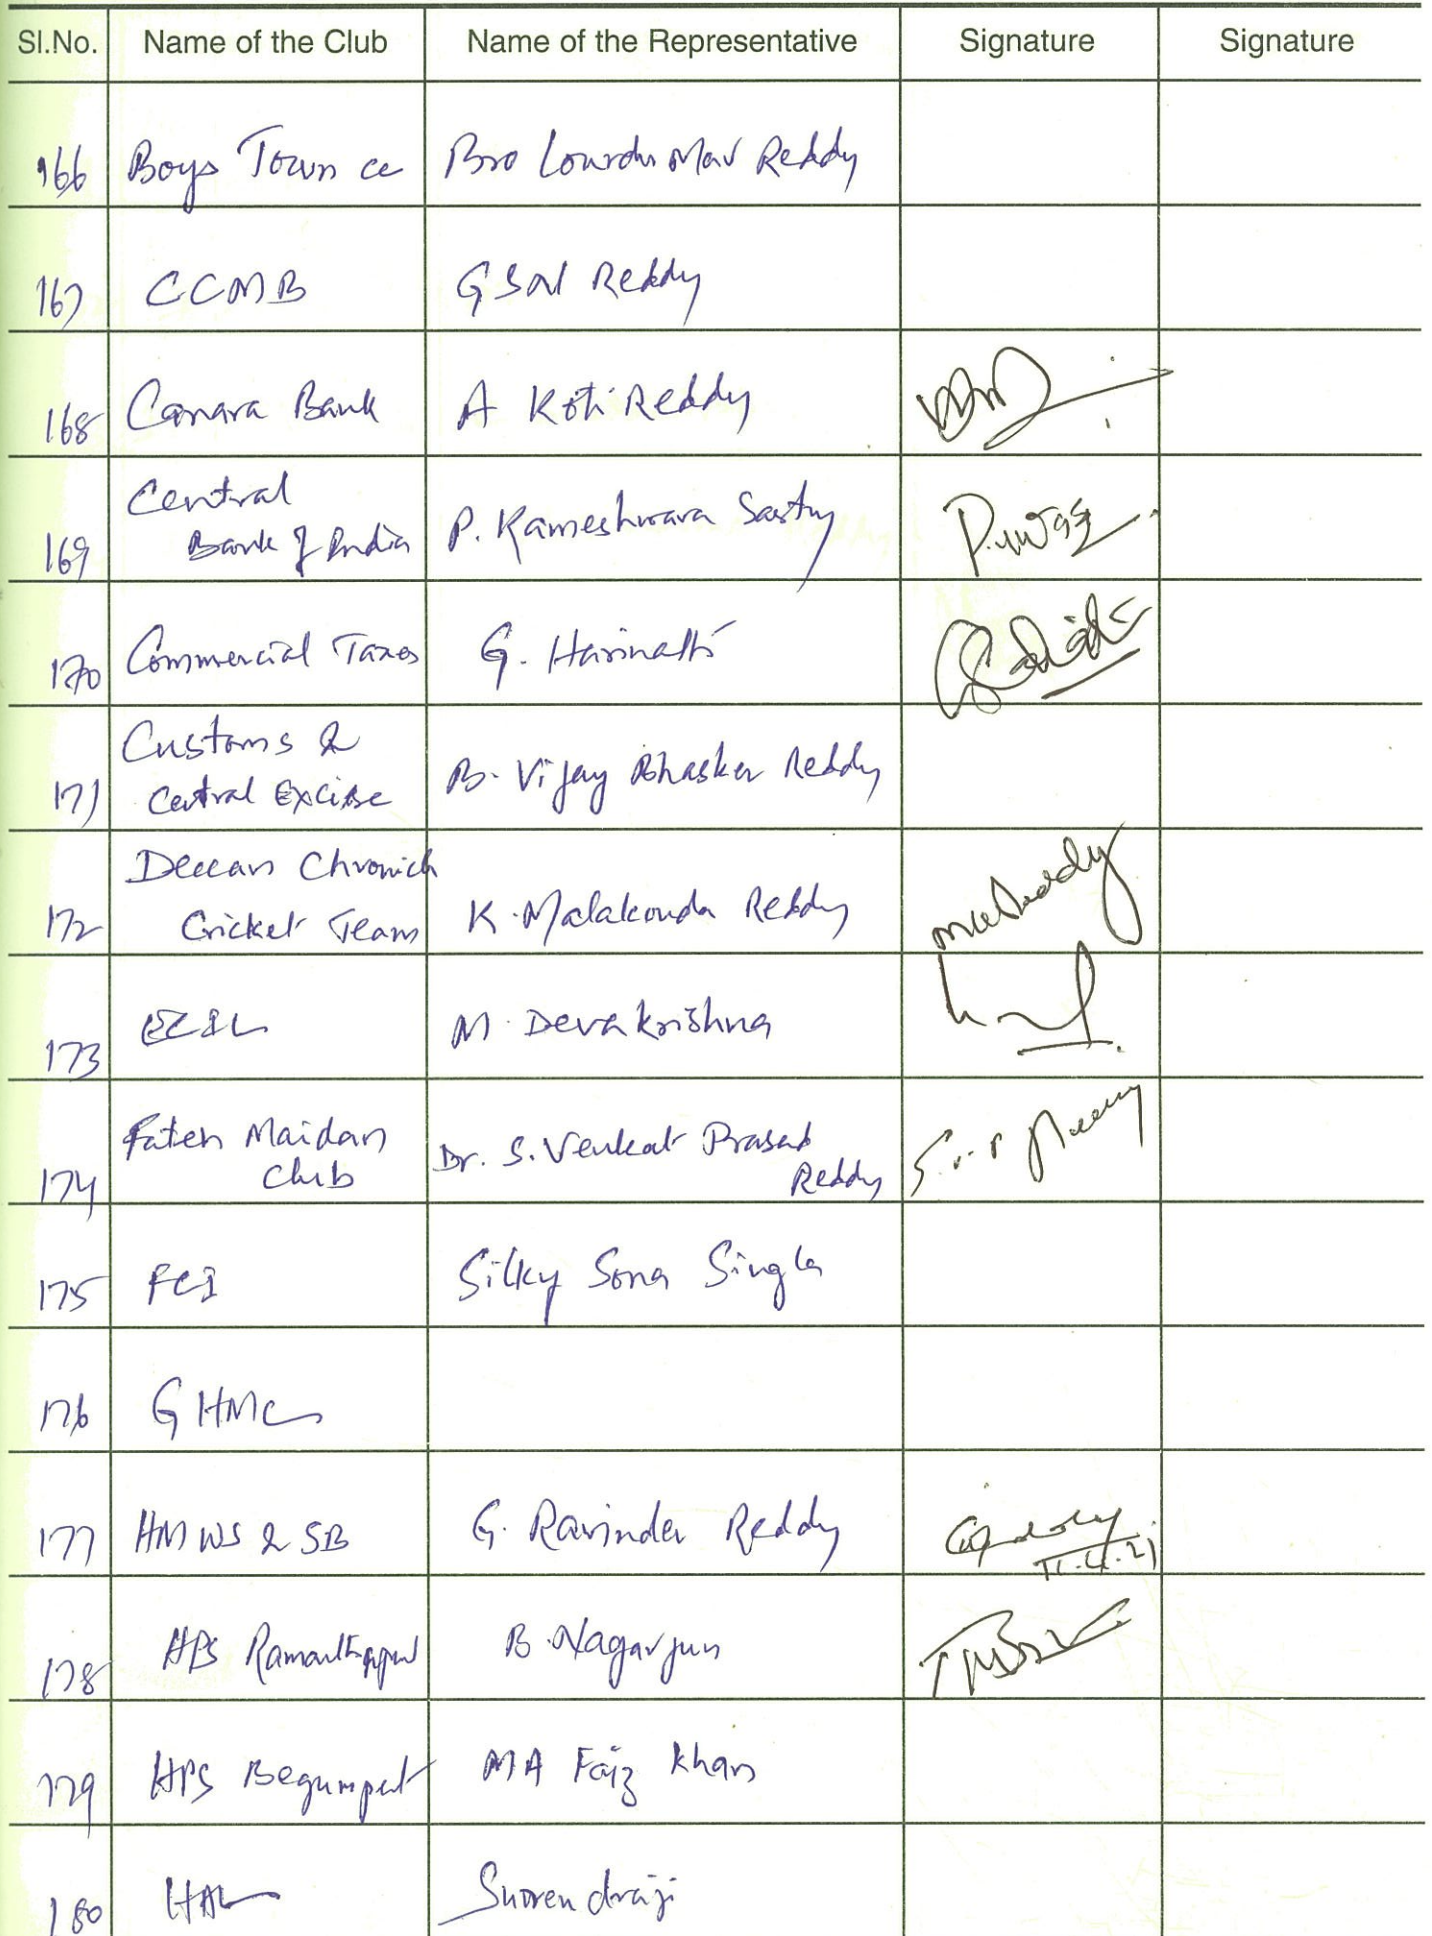 Sl.No. Name of the Club Name of the Representative Signature Signature
166 Boys Town cc Bro Lourdu Reddy
167 CCMB Reddy
168 Canara Bank A Koti Reddy
Central
169 Bank of India P. Kameshwara Sastry
170 Commercial Taxes G. Harinath
Customs &
171 Central Excise B. Vijay Bhasker Reddy
Deccan Chronicle
172 Cricket Team K. Malakonda Reddy
173 ECIL M. Devakrishna
Fateh Maidan Dr. S. Venkat Prasad
174 Club Reddy
175 FCI Silky Sona Singla
176 GHMC
177 HMWS & SB G. Ravinder Reddy
11.4.21
178 HPS Ramanthapur B. Nagarjun
179 HPS Begumpet MA Faiz Khan
180 HAL